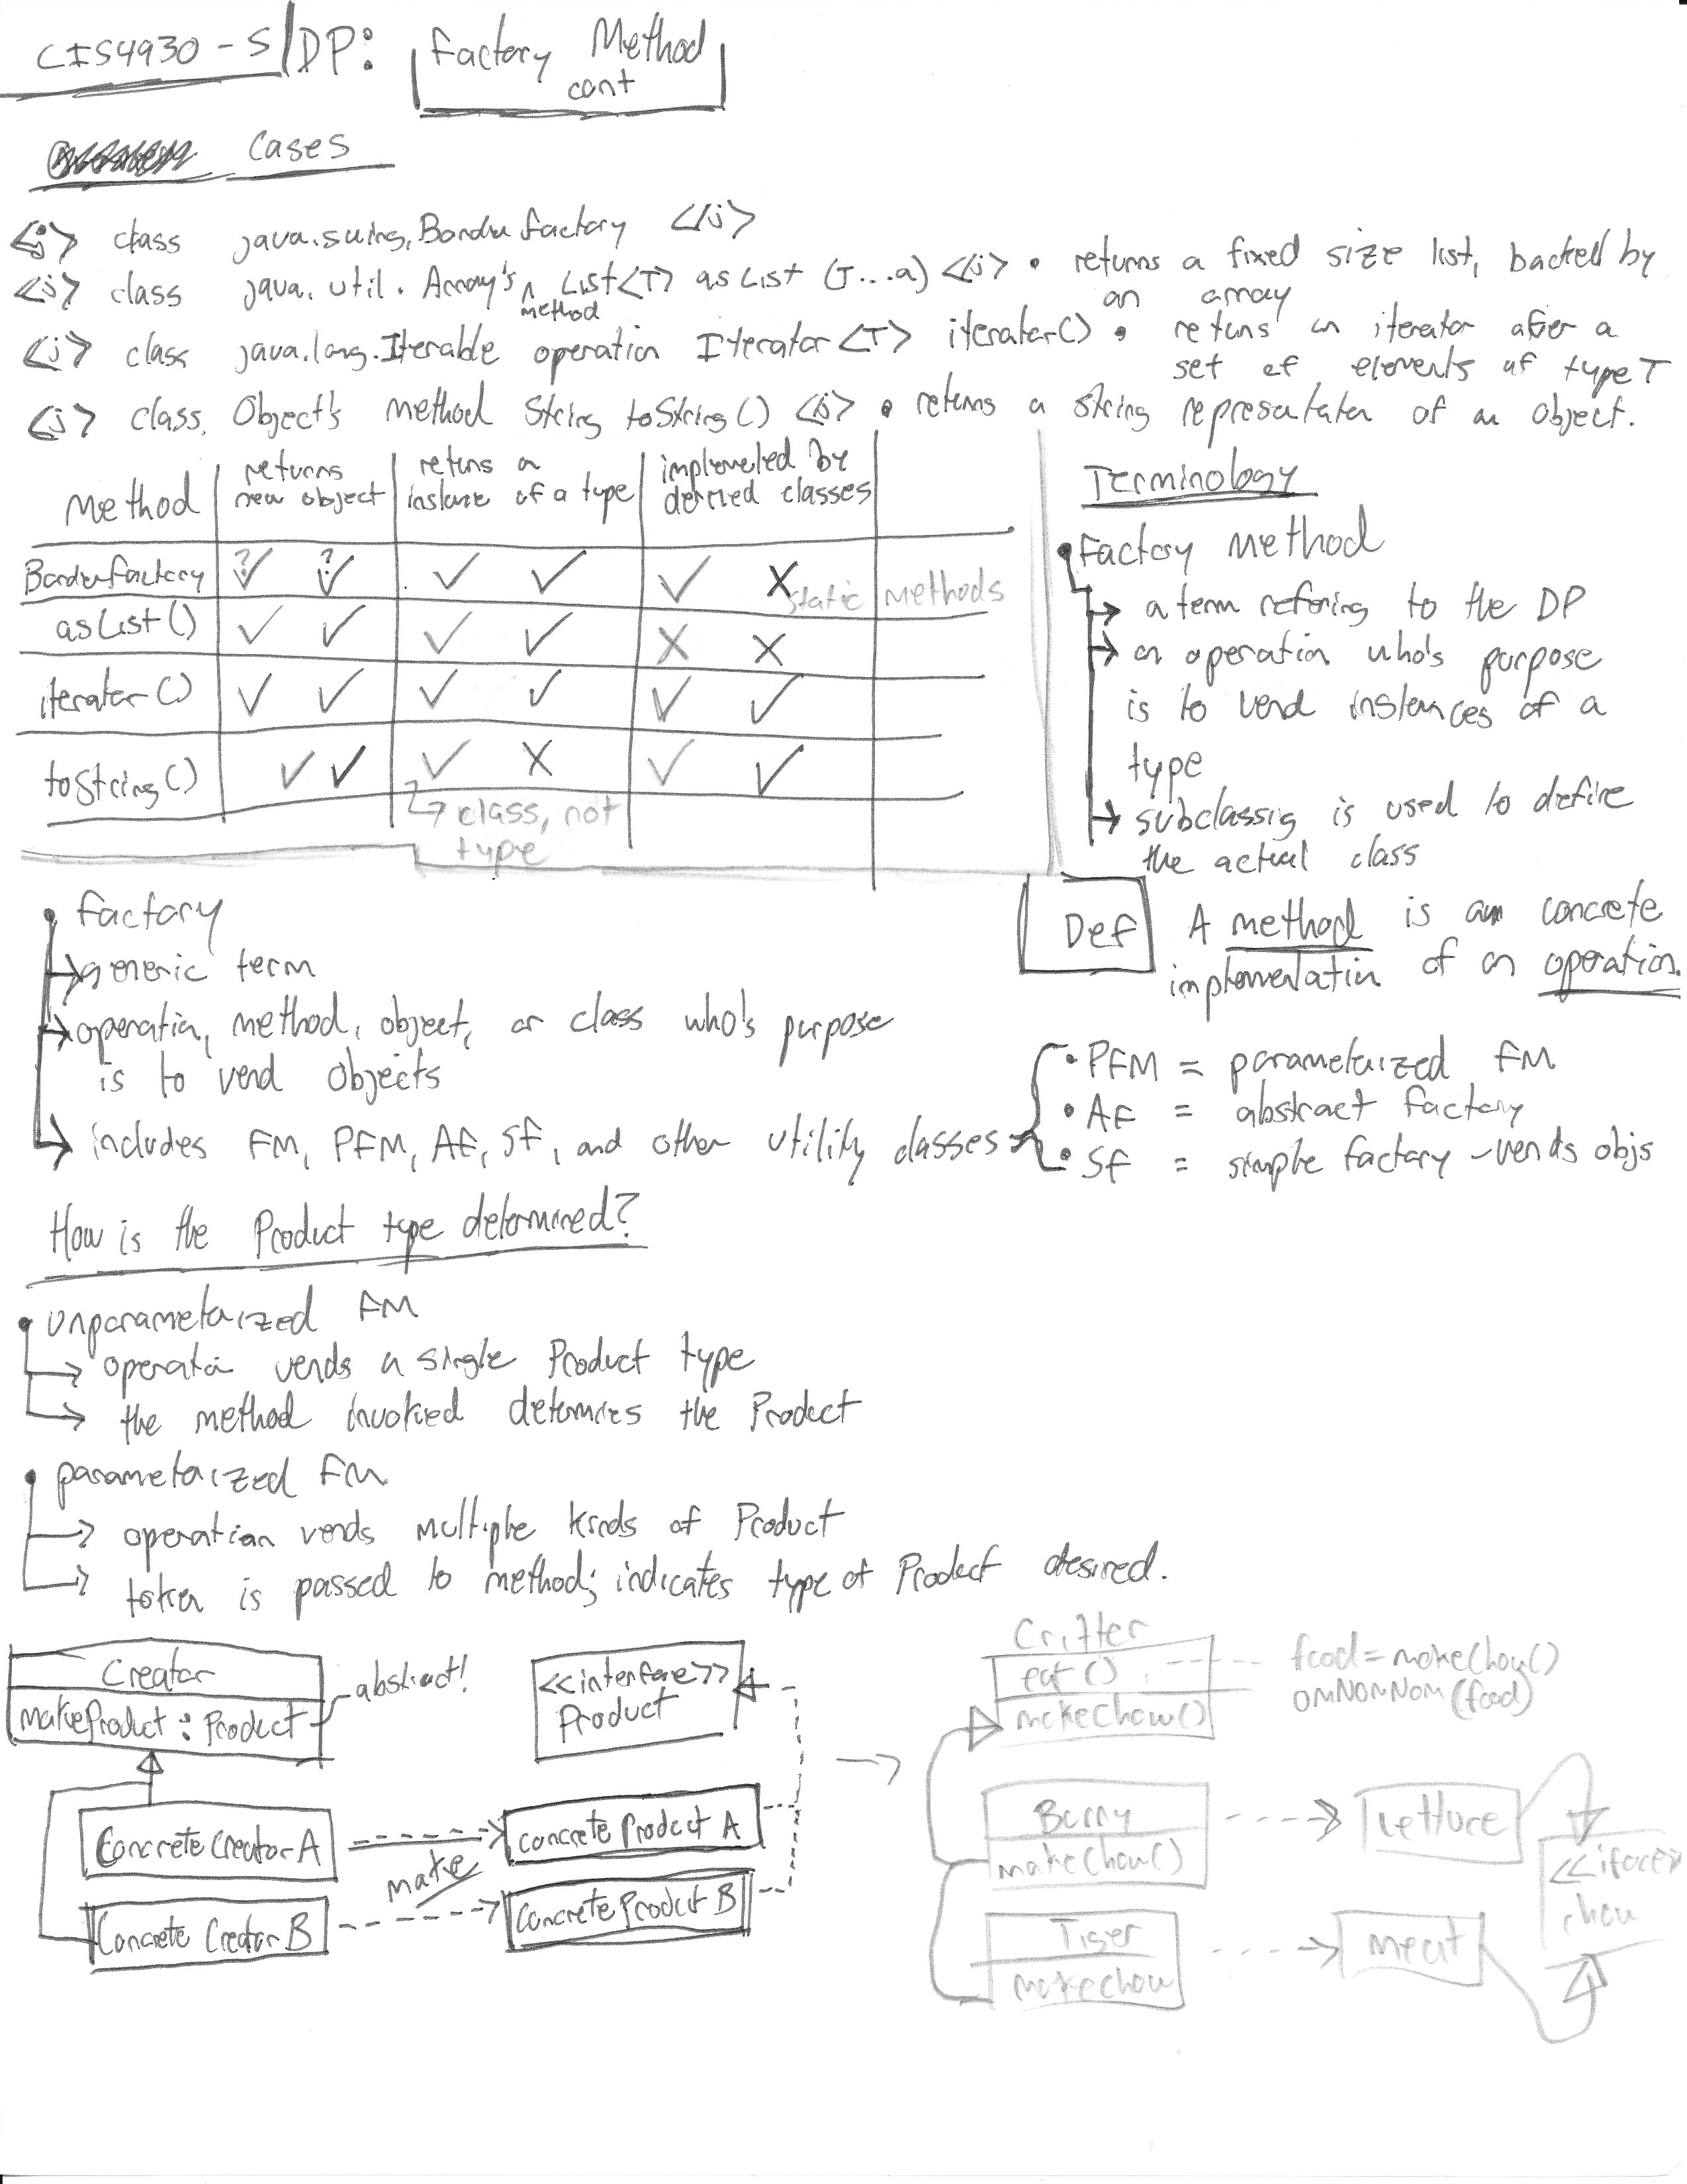 CIS4930-S/DP: Factory Method
cont
Cases
<j> class java.swing.BorderFactory </j>
<j> class java.util.Array's method List<T> asList (T...a) </j> • returns a fixed size list, backed by
an array
<j> class java.lang.Iterable operation Iterator<T> iterator() • returns an iterator over a
set of elements of type T
<j> class Object's method String toString() </j> • returns a string representation of an object.
Method | returns new object | returns a instance of a type | implemented by derived classes
BorderFactory ?✓ ?✓ ✓ ✓ ✓ X static methods
asList() ✓ ✓ ✓ ✓ X X
iterator() ✓ ✓ ✓ ✓ ✓ ✓
toString() ✓ ✓ ✓ X ✓ ✓
↳ class, not
type
Terminology
• Factory Method
→ a term refering to the DP
→ an operation who's purpose
is to vend instances of a
type
→ subclassing is used to define
the actual class
Def A method is a concrete
implementation of an operation.
• factory
→ generic term
→ operation, method, object, or class who's purpose
is to vend objects
→ includes FM, PFM, AF, SF, and other utility classes
• PFM = parameterized FM
• AF = abstract factory
• SF = simple factory - vends objs
How is the Product type determined?
• unparameterized FM
→ operation vends a single Product type
→ the method invoked determines the Product
• parameterized FM
→ operation vends multiple kinds of Product
→ token is passed to method; indicates type of Product desired.
Creator
makeProduct : Product
abstract!
<<interface>>
Product
Concrete Creator A
make
Concrete Product A
Concrete Creator B
Concrete Product B
Critter
eat()
makeChow()
food = makeChow()
omNomNom(food)
Bunny
makeChow()
Lettuce
<<iface>>
chow
Tiger
makechow
meat